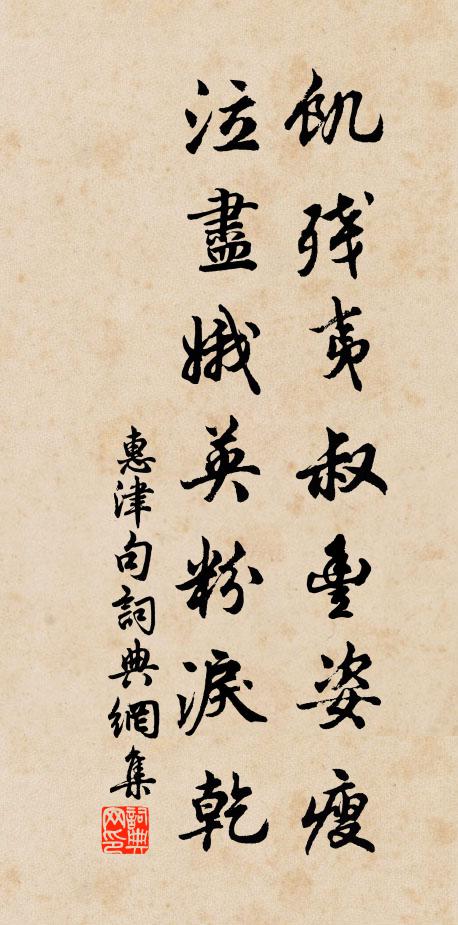 飢殘夷叔豐姿瘦
泣盡娥英粉淚乾
惠津句詞典網集
詞典網印